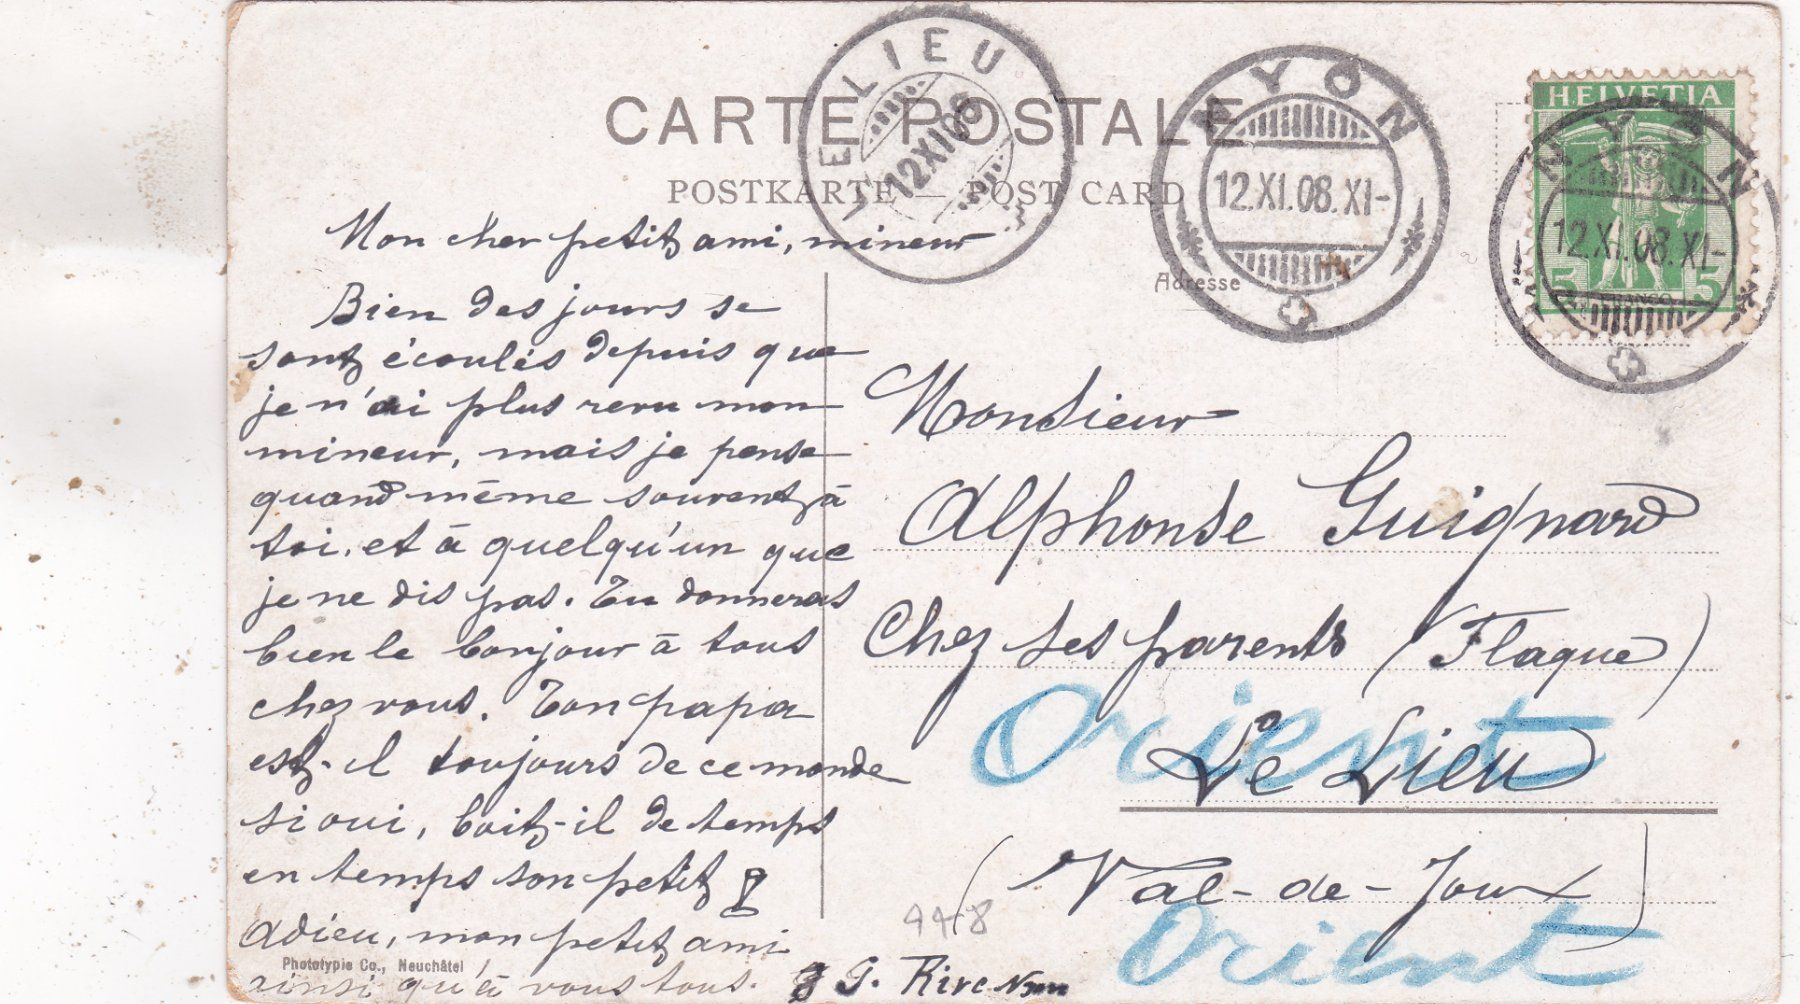 CARTE POSTALE
POSTKARTE — POST CARD
LE LIEU
12 XI 08
NYON
12.XI.08.XI-
HELVETIA
5 5
FRANCO
NYON
12.XI.08.XI-
Mon cher petit ami, mineur
Bien des jours se
sont écoulés depuis que
je n'ai plus revu mon
mineur, mais je pense
quand même souvent à
toi. et à quelqu'un que
je ne dis pas. Tu donneras
bien le bonjour à tous
chez vous. Ton papa
est-il toujours de ce monde
si oui, boit-il de temps
en temps son petit
Adieu, mon petit ami
ainsi qu'à vous tous. G.
Phototypie Co., Neuchâtel
Adresse
Monsieur
Alphonse Guignard
Chez ses parents (Flaque)
Le Lieu
Orient
(Val-de-Joux)
Orient